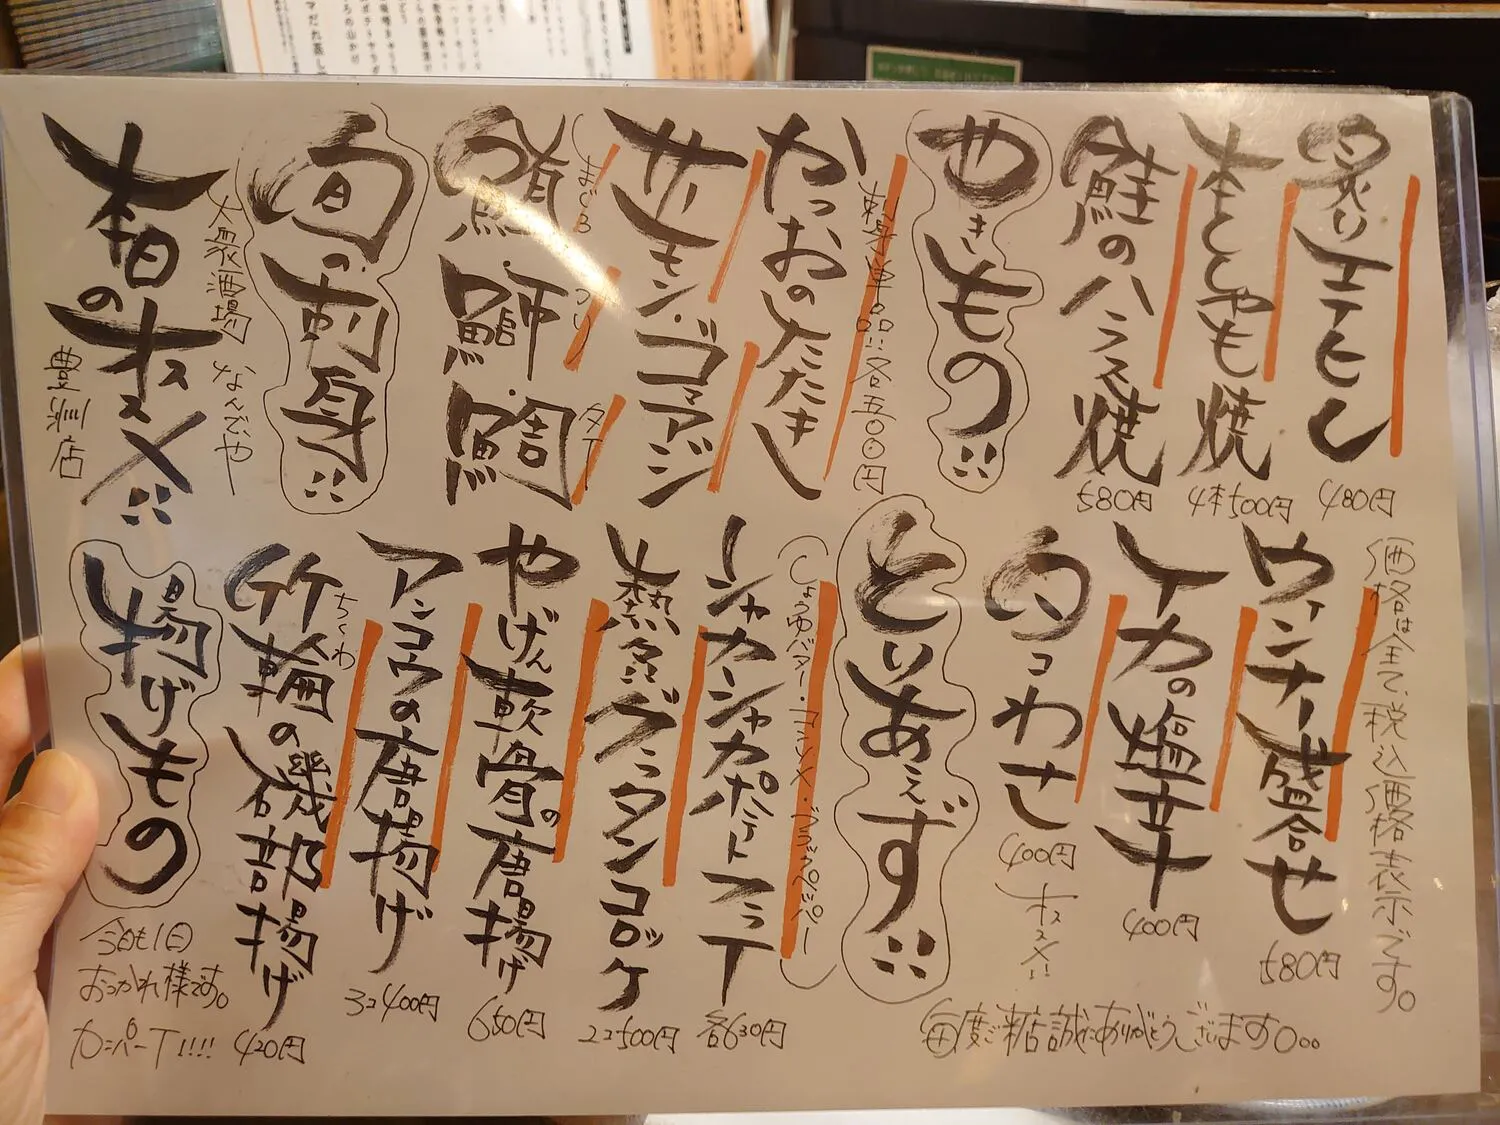 本日のオススメ!!
大衆酒場 なんでや
豊洲店
旬の刺身!!
鮪・鰤・鯛
まぐろ ぶり タイ
サーモン・ゴマアジ
かつおのたたき
刺身単品!!各五〇〇円
やきもの!!
鮭のハラス焼
580円
本ししゃも焼
4本500円
炙りエイヒレ
480円
揚げもの
竹輪の磯部揚げ
ちくわ
420円
アンコウの唐揚げ
3コ400円
やげん軟骨の唐揚げ
650円
熱々!!グラタンコロッケ
2コ500円
シャカシャカポテトフライ
各630円
(しょうゆバター・コンソメ・ブラックペッパー)
とりあえず!!
タコわさ
400円
オススメ!!
イカの塩辛
400円
ウインナー盛合せ
580円
価格は全て税込価格表示です。
今日も1日
おつかれ様です。
カンパーイ!!!!
毎度ご来店誠にありがとうございます。。。